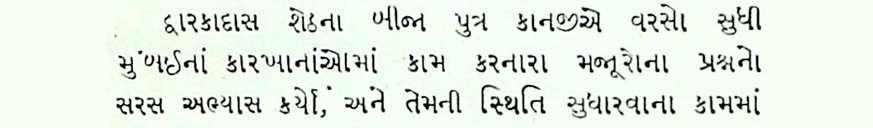 દ્વારકાદાસ શેઠના બીજા પુત્ર કાનજીએ વરસો સુધી
મુંબઈનાં કારખાનાંઓમાં કામ કરનારા મજૂરોના પ્રશ્નનો
સરસ અભ્યાસ કર્યો, અને તેમની સ્થિતિ સુધારવાના કામમાં